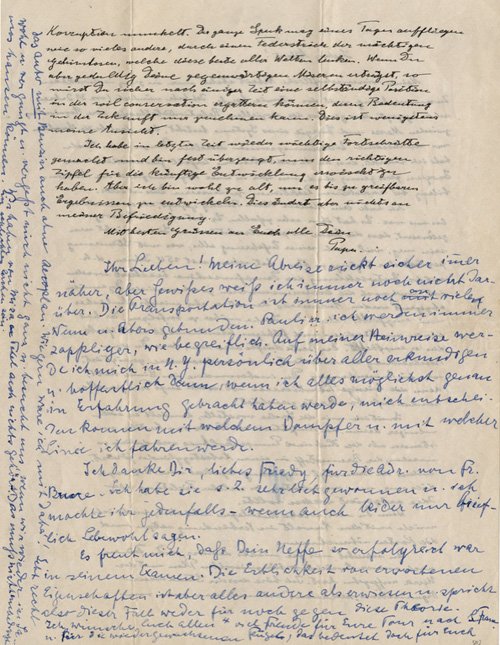 Korruption munkelt. Die ganze Spuk mag eines Tages auffliegen
wie so vieles andere, durch einen Federstrich der mächtigen
Gehirnlosen, welche diese beste aller Welten lenken. Wenn Du
aber geduldig Deine gegenwärtigen Miseren erträgst, so
wirst Du sicher nach einiger Zeit eine selbständige Position
in der soil conservation ergattern können, deren Bedeutung
in der Zukunft nur zunehmen kann. Dies ist wenigstens
meine Ansicht.
Ich habe in letzter Zeit wieder wichtige Fortschritte
gemacht und bin fest überzeugt, nun den richtigen
Zipfel für die künftige Entwicklung erwischt zu
haben. Aber ich bin wohl zu alt, um es bis zu greifbaren
Ergebnissen zu entwickeln. Dies ändert aber nichts an
meiner Befriedigung.
Mit besten Grüssen an Euch alle Dein
Papa.
Ihr Lieben! Meine Abreise rückt sicher immer
näher, aber Gewisses weiß ich immer noch nicht dar-
über. Die Transportation ist immer noch an vielen
Wenn u. Abers gebunden. ich werden immer
zappliger, wie begreiflich. Auf meiner Heimreise wer-
de ich mich in N.Y. persönlich über alles erkundigen
u. hoffentlich dann, wenn ich alles möglichst genau
in Erfahrung gebracht haben werde, mich entschei-
den können mit welchem Dampfer u. mit welcher
Linie ich fahren werde.
Ich danke Dir, liebes Friedy, für die Adr. von Fr.
Ich habe sie s. Z. sehr lieb gewonnen u. ich
möchte ihr jedenfalls – wenn auch leider nur brief-
lich Lebewohl sagen.
Es freut mich, daß Dein Neffe so erfolgreich war
in seinem Examen. Die Erblichkeit von erworbenen
Eigenschaften ist aber alles andere als erwiesen u. spricht
also dieser Fall weder für noch gegen diese Theorie.
Ich wünsche Euch allen viel Freude für Eure Tour nach
u. für die wiedergewachsenen Flügel, das bedeutet doch für Euch
das Auto mit Benzin auch ohne Aeroplan. Wie gern wäre ich mit dabei! Lebt recht
wohl u. vergnügt u. vergeßt mich nicht ganz u. besucht uns, wenn wir wieder in